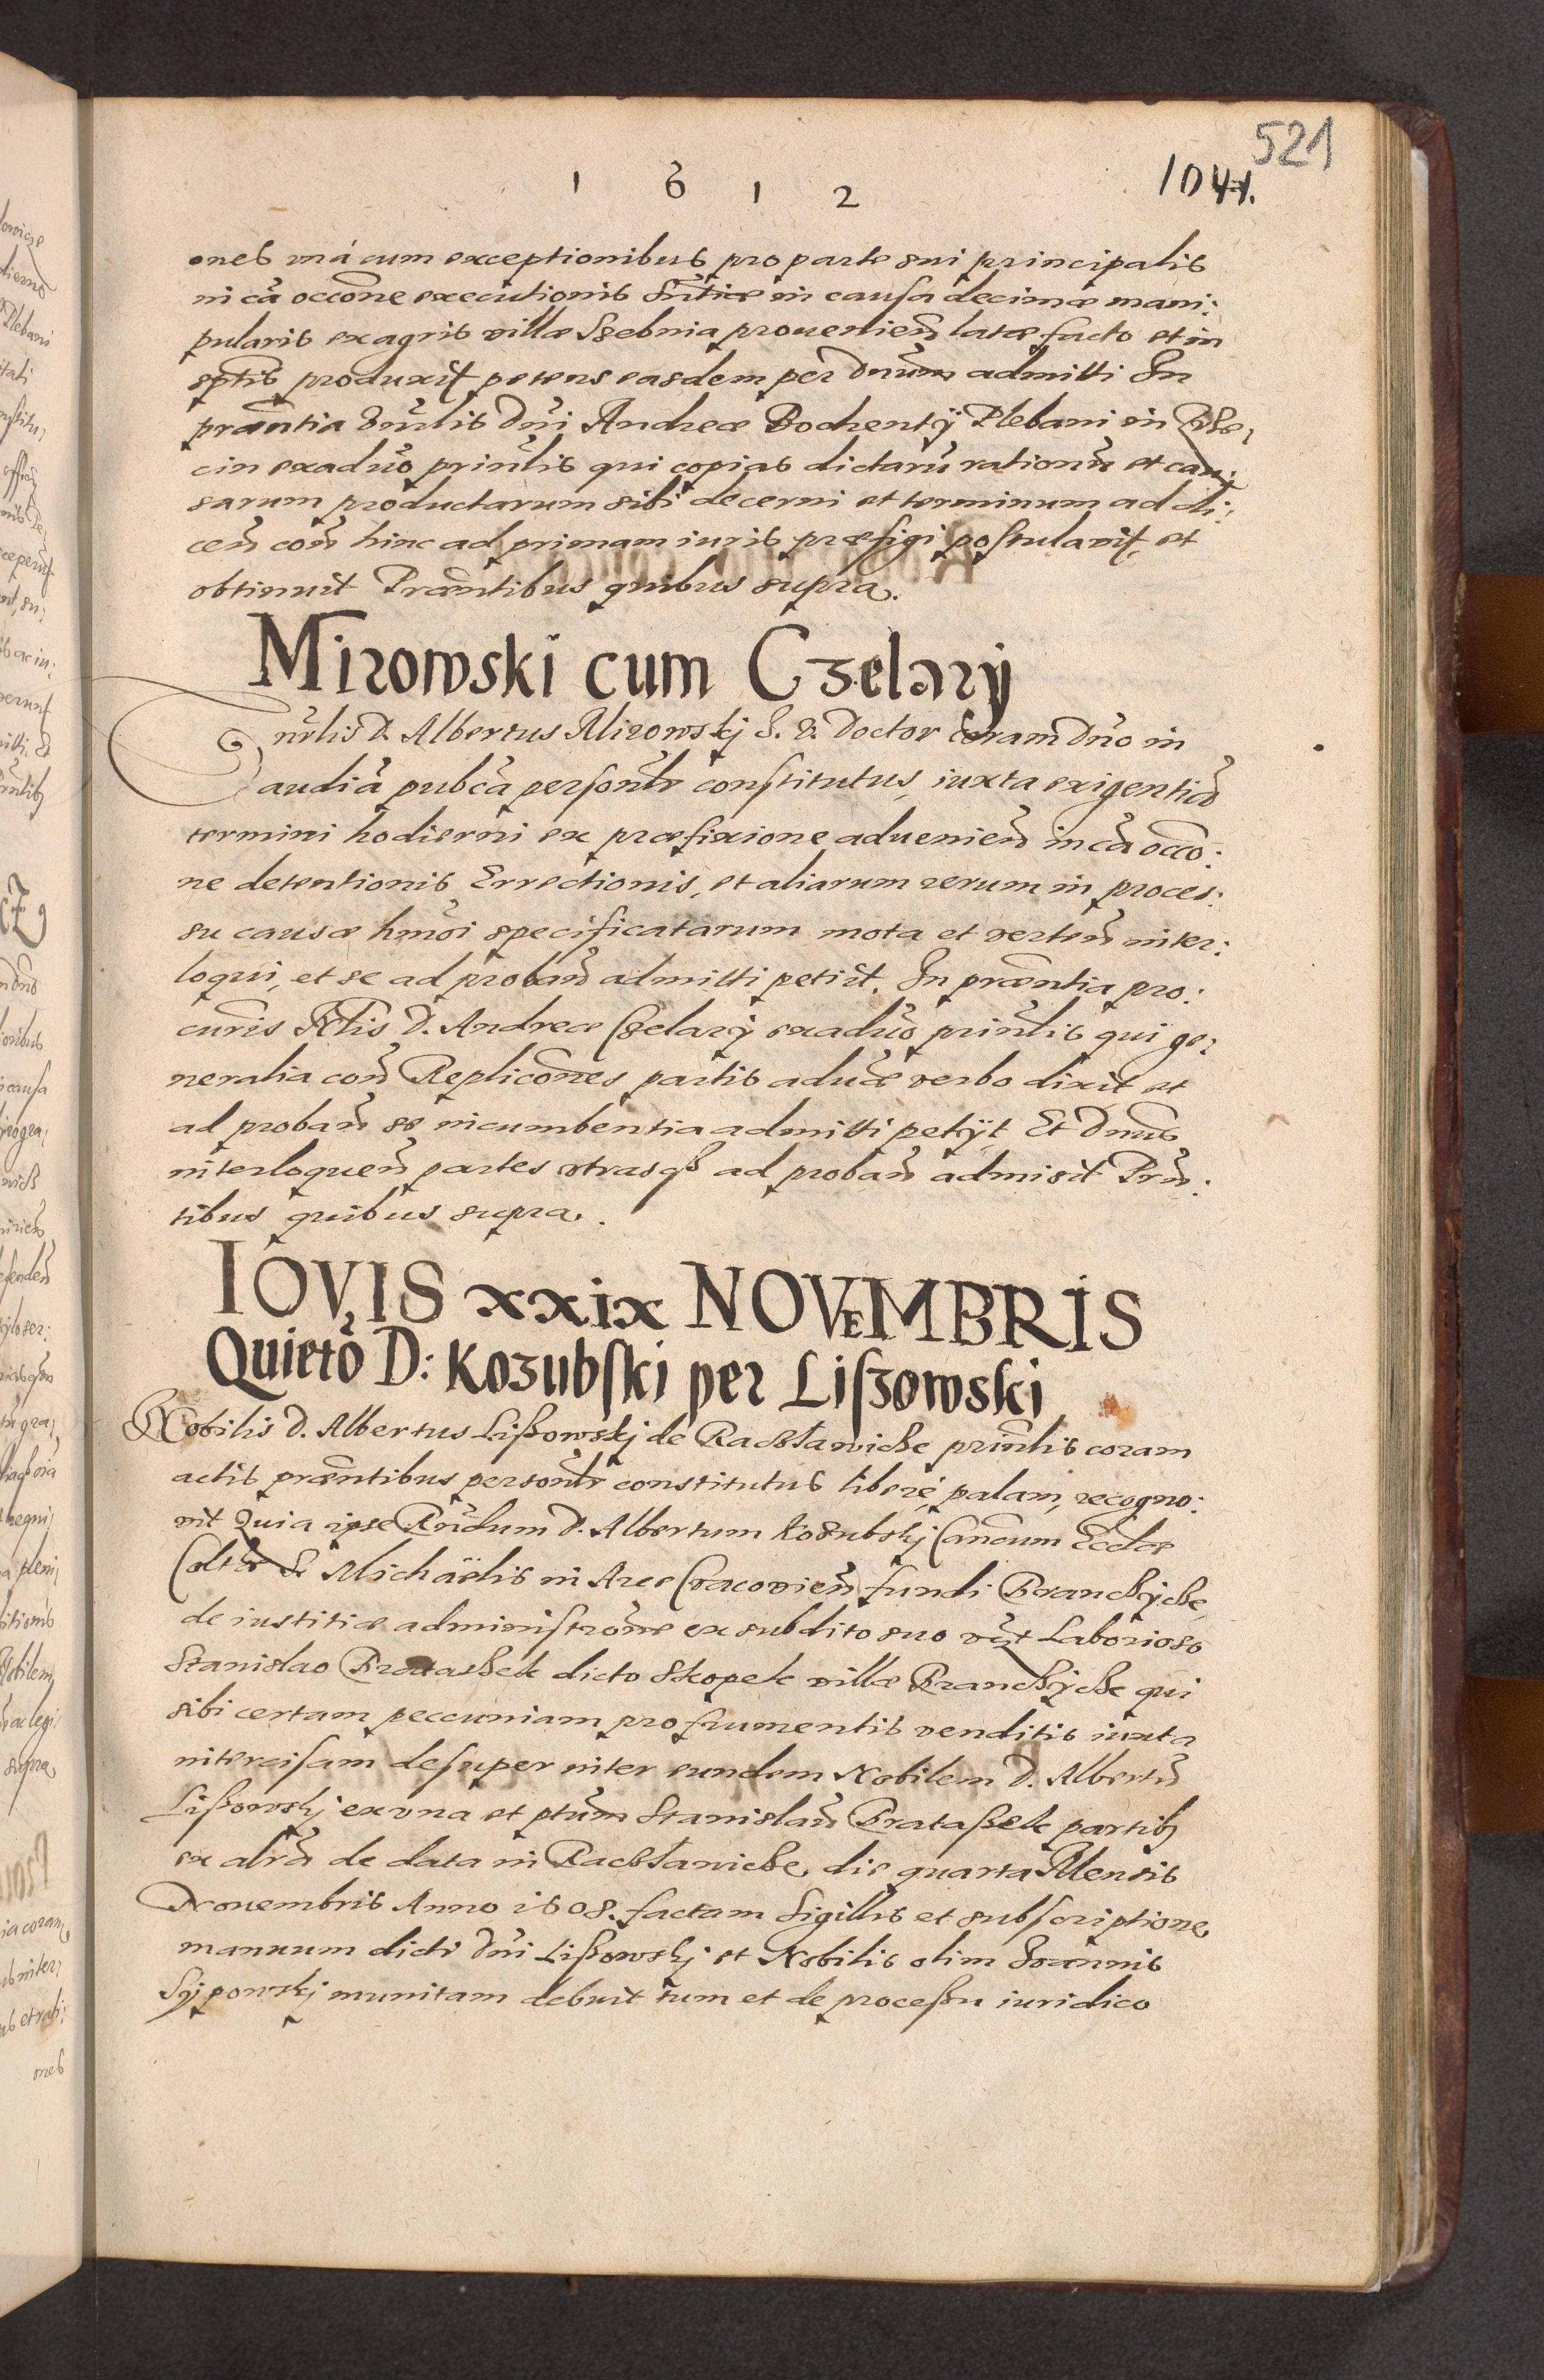 521
1 6 1 2
1041.
ones una cum exceptionibus pro parte sui principalis
in cã occõne executionis sntiæ in causa decimæ mani:
pularis ex agris villæ Szebnia prouenien̄ latæ facto et in
sptis produxit petens easdem per Dnum admitti In
præntia Vnrlis Dni Andreæ Bochenty Plebani in
cin exaduo prinlis qui copias dictarū rationū et cau:
sarum productarum sibi decerni et terminum ad di:
cen̄ con̄ hinc ad primam iuris præfigi postulavit, et
obtinuit Præntibus quibus supra.
Mirowski cum Czelary
Vnrlis D. Albertus Mirowskj S. V. Doctor Coram Dno in
audiā pubcā personlr constitutus, iuxta exigentiā
termini hodierni ex præfixione aduenien̄ in cā occo:
ne detentionis Errectionis, et aliarum rerum in proces:
su causæ hmoi specificatarum mota et verten̄ inter:
loqui, et se ad proban̄ admitti petiit. In præntia pro:
curis D. Andreæ Czelary exaduo prinlis qui ge:
neralia con̄ Replicones partis aduæ verbo dixit et
ad proban̄ se incumbentia admitti petijt Et Dnus
interloquen̄ partes vtrasqß ad proban̄ admisit Prn:
tibus quibus supra.
IOVIS xxix NOVEMBRIS
Quietō D: Kozubski per Liszowski
Nobilis D. Albertus Lißowskj de Racławicze prinlis coram
actis præntibus personlr constitutus libere, palam, recogno:
vit Quia ipse Rndum D. Albertum Kozubskj Canōcum Ecclæ
Coltæ S. Michaëlis in Arce Cracovien̄ fundi Branczycze
de iustitiæ administrõne ex subdito suo vēt Laborioso
Stanislao Bratassek dicto Skopek villæ Branczycze qui
sibi certam peccuniam pro frumentis venditis iuxta
intercisam desuper inter eundem Nobilem D. Albertū
Lißowskj ex vna et ptum Stanislaū Grataßek partib9
ex altrā de data in Racławicze die quarta Mensis
Nouembris Anno 1608. factam Sigillis et subscriptione
manuum dicti Dni Lißowskj et Nobilis olim Joannis
Sypowskj munitam debuit tum et de proceßu iuridico